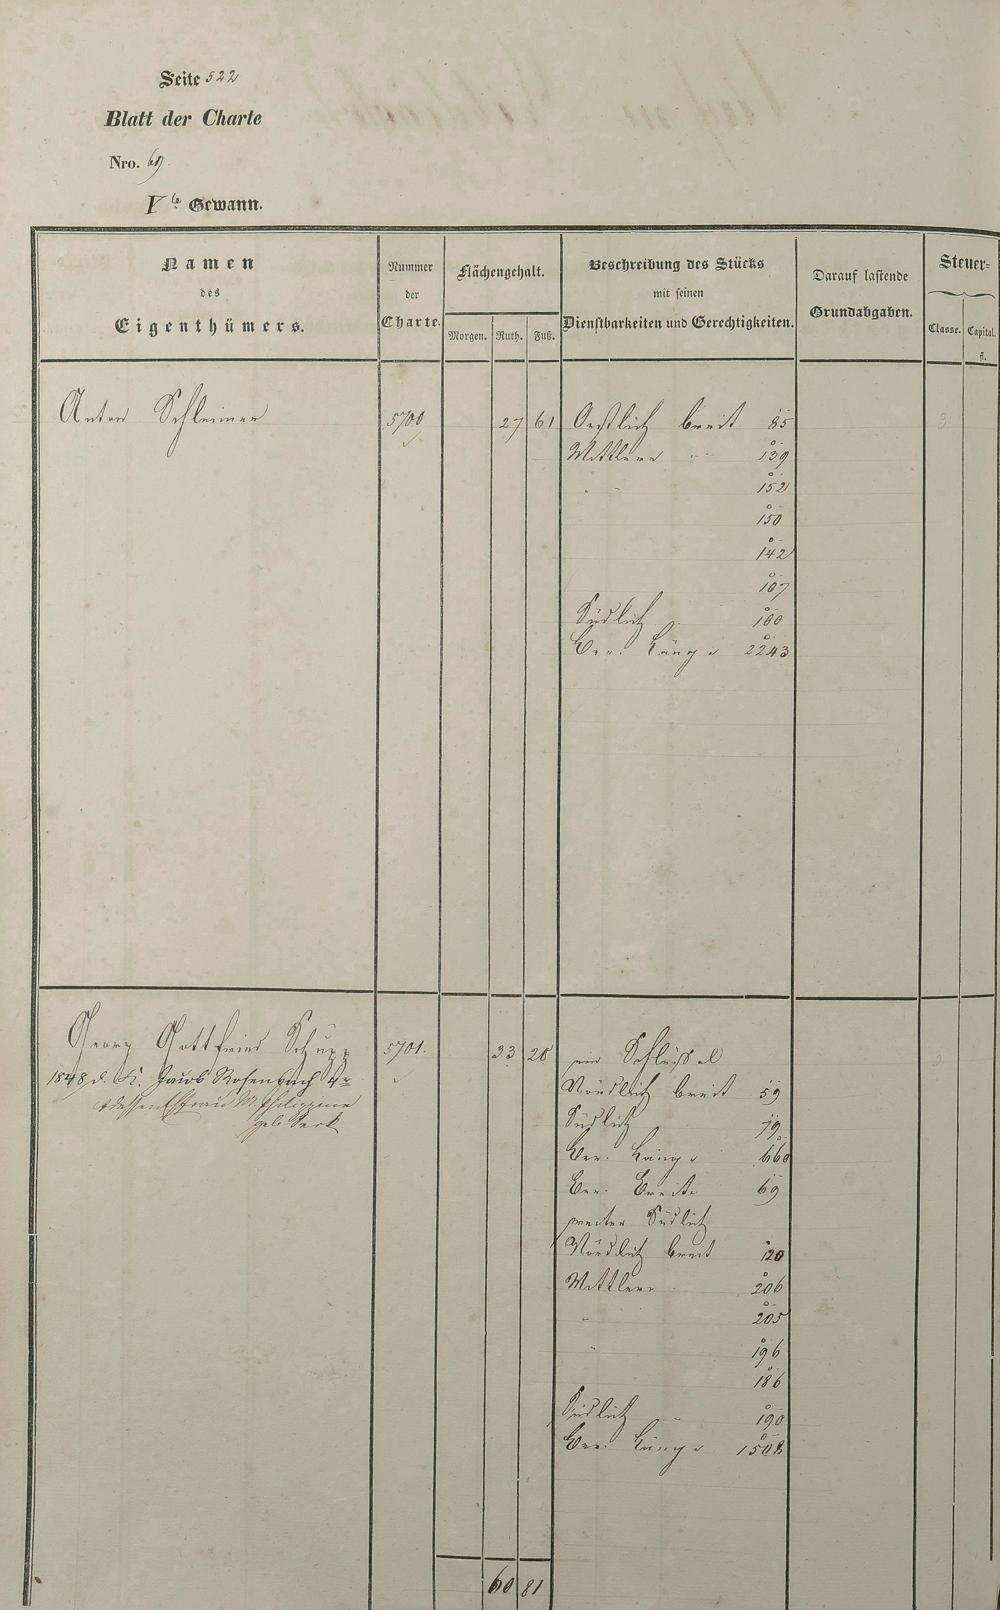 Seite 522
Blatt der Charte
Nro. 69.
Vte Gewann.
Namen
des
Eigenthümers.
Nummer
der
Charte.
Flächengehalt.
Morgen. Ruth. Fuß.
Beschreibung des Stücks
mit seinen
Dienstbarkeiten und Gerechtigkeiten.
Darauf lastende
Grundabgaben.
Steuer-
Classe. Capital.
fl.
Anton Schleimer 5700 27 61 Oestlich breit 85
Mittlere " 139
" 152
150
142
107
Südlich " 100
Ver. Länge 2243
Georg Gottfried Schupp 5701. 33 20 ein Schlüssel
1848 d. K. Jacob Rosenbach 4r
& dessen Efrau M. Philippine
geb. Seck
Nördlich breit 59
Südlich 79
Ver. Länge 660
Ver. Breite 69
weiter Südlich
Nördlich breit 120
Mittlere " 206
" 205
" 196
186
Südlich " 190
Ver. Länge 1508
60 81